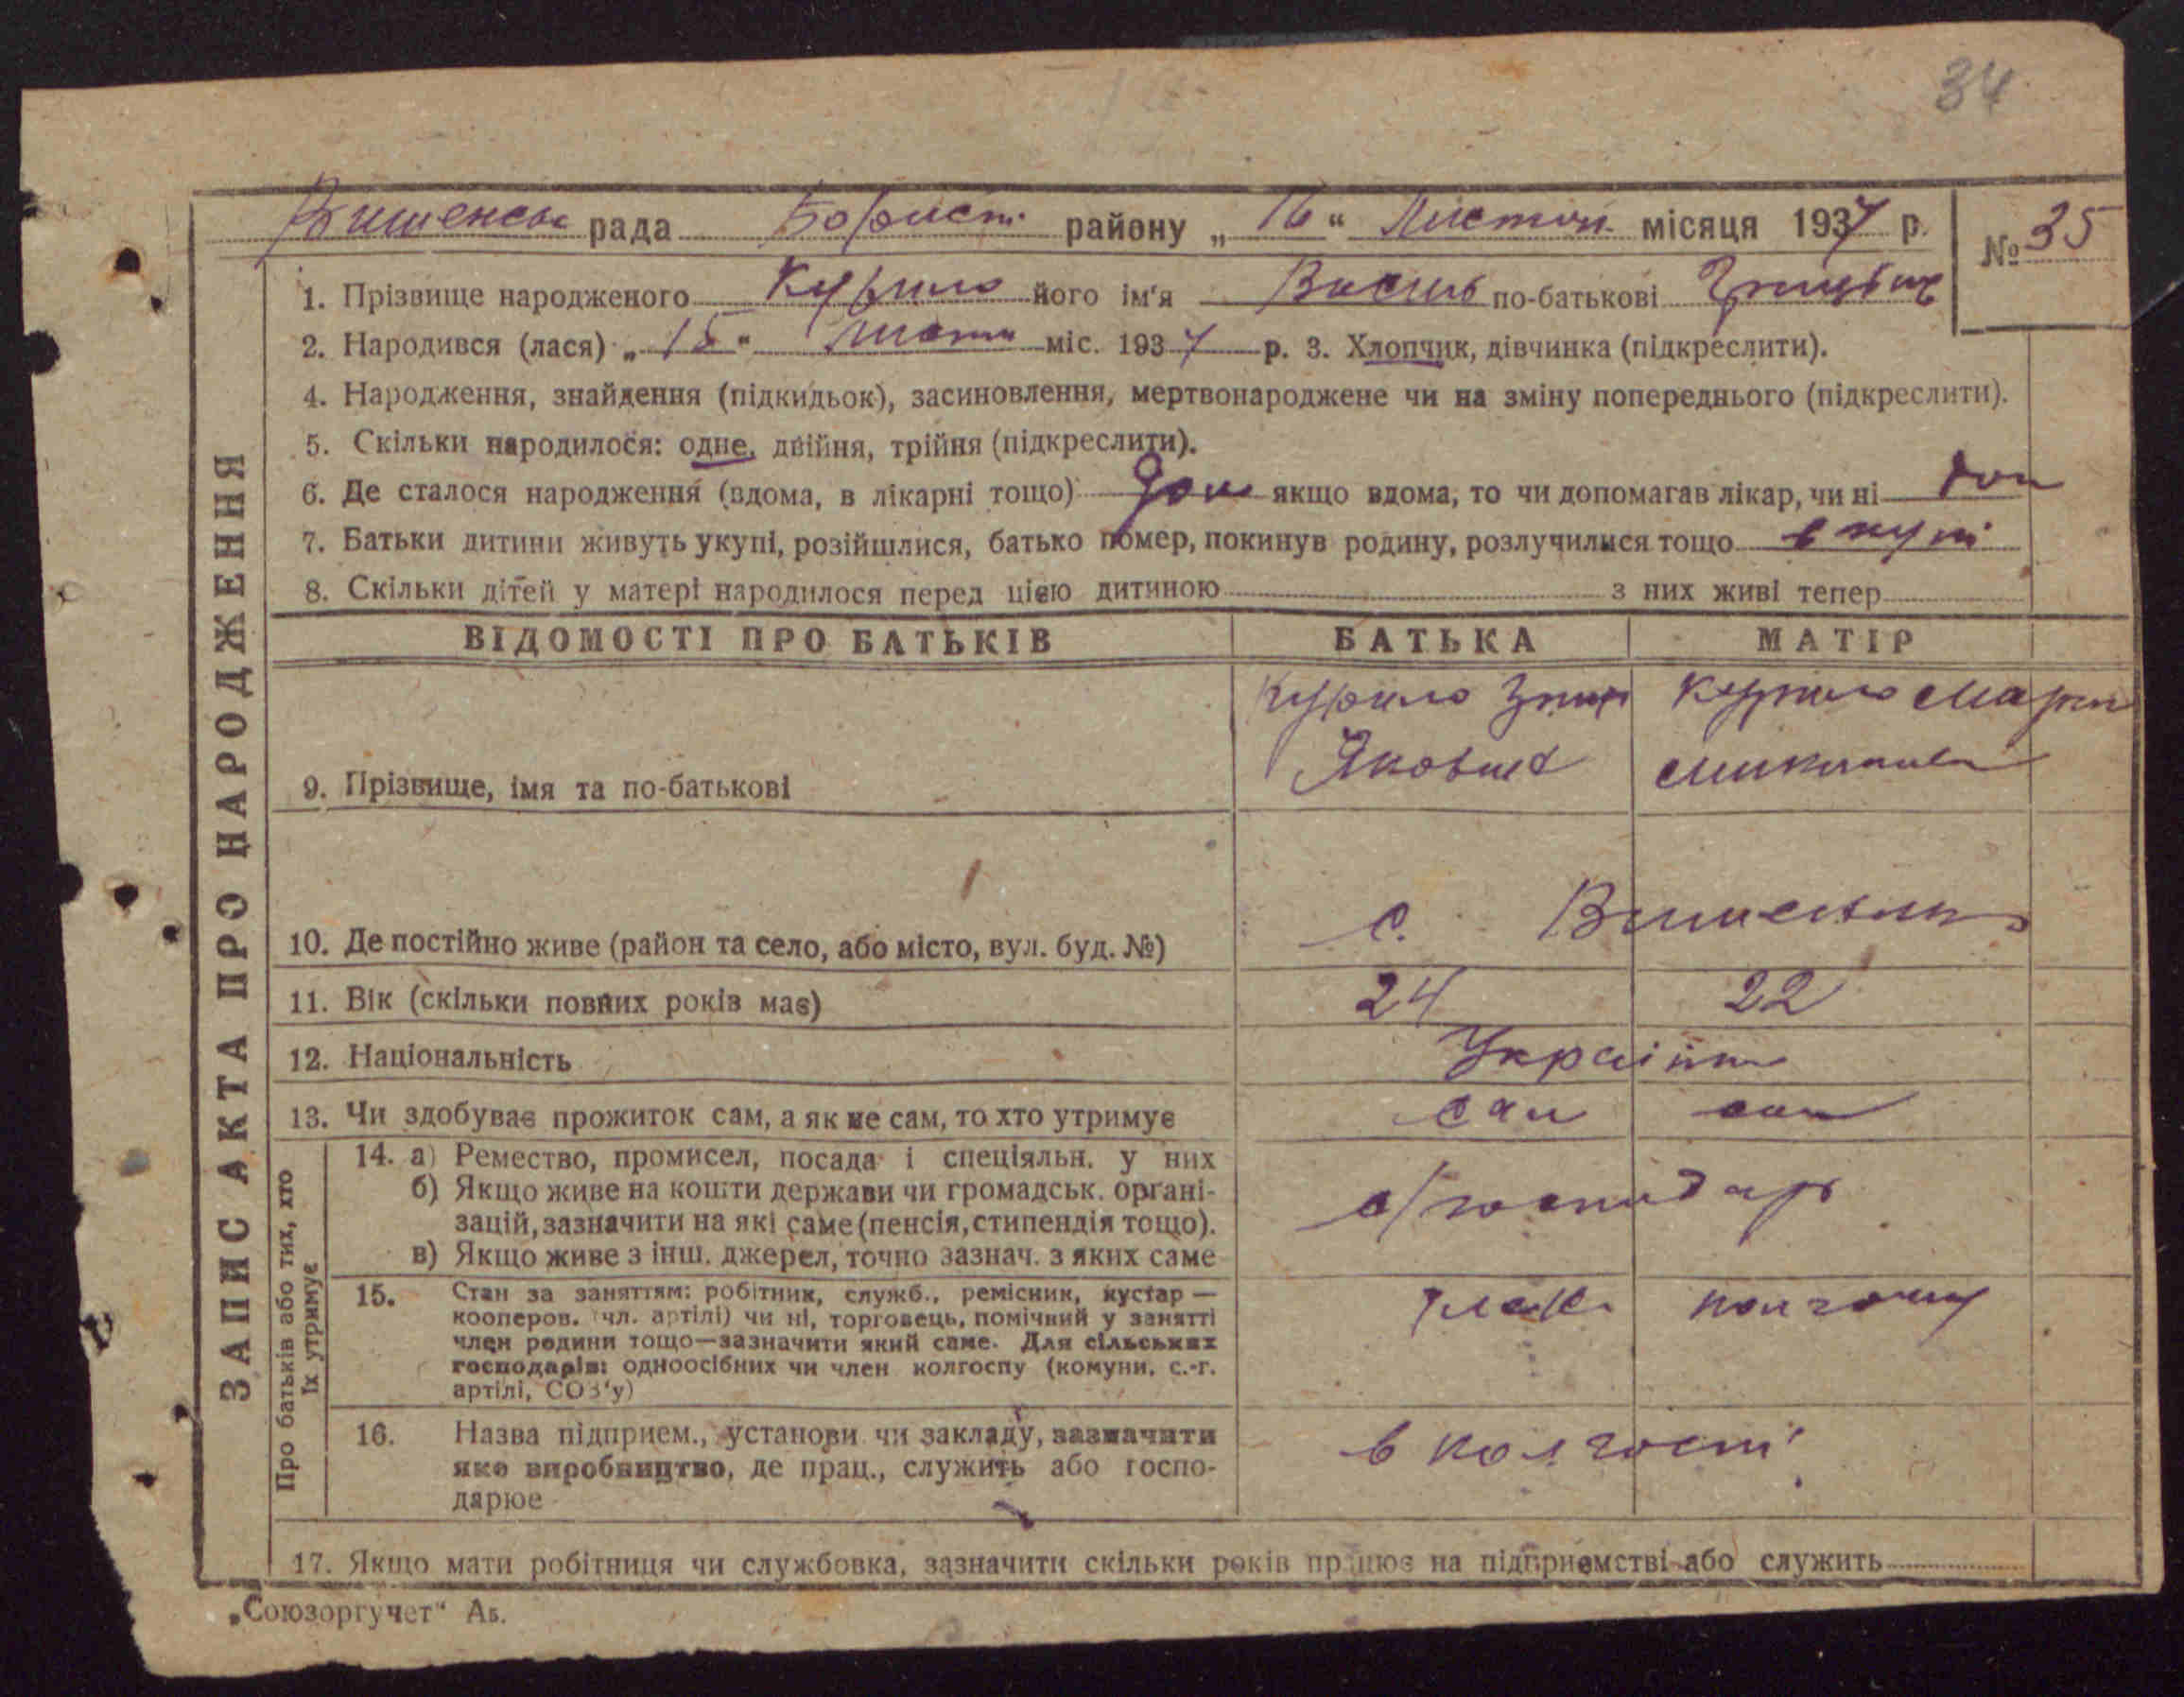 34
Вишенськ рада Борисп. району „16“ Листоп. місяця 1937 р. № 35
1. Прізвище народженого Курило його ім'я Василь по-батькові Грицьвич
2. Народився (лася) „15“ листоп міс. 1937 р. 3. Хлопчик, дівчинка (підкреслити).
4. Народження, знайдення (підкидьок), засиновлення, мертвонароджене чи на зміну попереднього (підкреслити).
5. Скільки народилося: одне, двійня, трійня (підкреслити).
6. Де сталося народження (вдома, в лікарні тощо) якщо вдома, то чи допомагав лікар, чи ні
7. Батьки дитини живуть укупі, розійшлися, батько помер, покинув родину, розлучилися тощо вкупі
8. Скільки дітей у матері народилося перед цією дитиною з них живі тепер
ВІДОМОСТІ ПРО БАТЬКІВ БАТЬКА МАТІР
Курило Гриц Курило Марія
9. Прізвище, імя та по-батькові Якович
10. Де постійно живе (район та село, або місто, вул. буд. №) с. Вишеньки
11. Вік (скільки повних років має) 24 22
12. Національність Україн
13. Чи здобуває прожиток сам, а як не сам, то хто утримує сам сам
14. а) Ремество, промисел, посада і спеціяльн. у них
б) Якщо живе на кошти держави чи громадськ. органі-
зацій, зазначити на які саме (пенсія, стипендія тощо). с/господарь
в) Якщо живе з інш. джерел, точно зазнач. з яких саме
15. Стан за заняттям: робітник, служб., ремісник, кустар —
кооперов. (чл. артілі) чи ні, торговець, помічний у занятті
член родини тощо—зазначити який саме. Для сільських
господарів: одноосібних чи член колгоспу (комуни, с.-г.
артілі, СОЗ'у) колгоспу
16. Назва підприєм., установи чи закладу, зазначити
яке виробництво, де прац., служить або госпо- в колгоспі
дарює
17. Якщо мати робітниця чи службовка, зазначити скільки років працює на підприємстві або служить
ЗАПИС АКТА ПРО НАРОДЖЕННЯ
Про батьків або тих, хто
їх утримує
„Союзоргучет“ Ав.